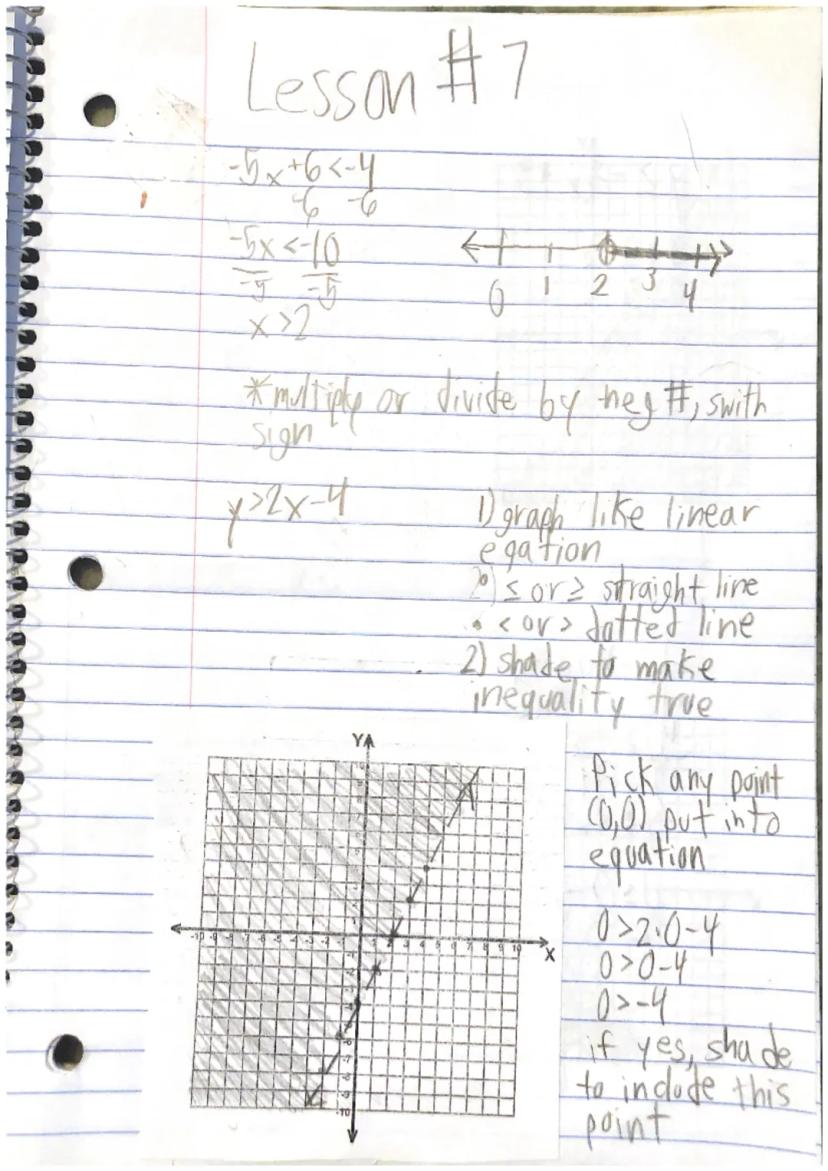 Lesson #7
-5x+6<-4
-6 -6
-5x<-10
-5 -5
x>2
0 1 2 3 4
*multiply or divide by neg #, swith
sign
y>2x-4
1) graph like linear
egation
2) ≤ or ≥ straight line
• < or > dotted line
2) shade to make
inequality true
Y
X
Pick any point
(0,0) put into
equation
0>2·0-4
0>0-4
0>-4
if yes, shade
to include this
point